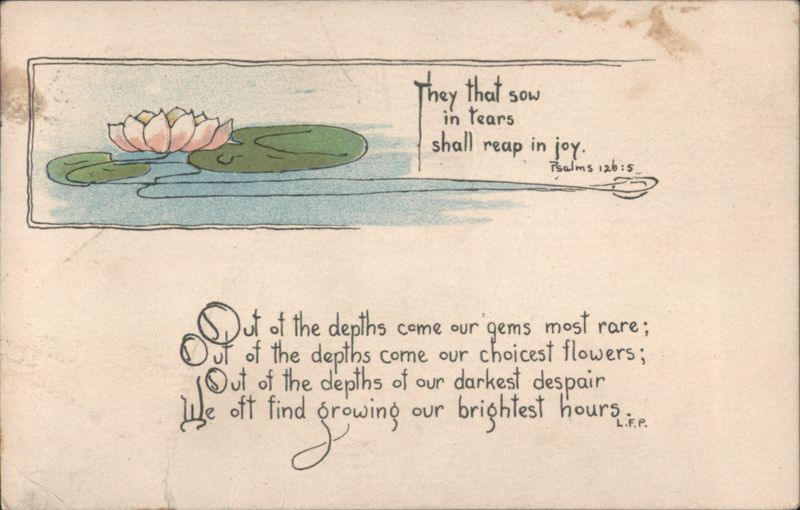 They that sow
in tears
shall reap in joy.
Psalms 126:5
Out of the depths come our gems most rare;
Out of the depths come our choicest flowers;
Out of the depths of our darkest despair
We oft find growing our brightest hours.
L.F.P.